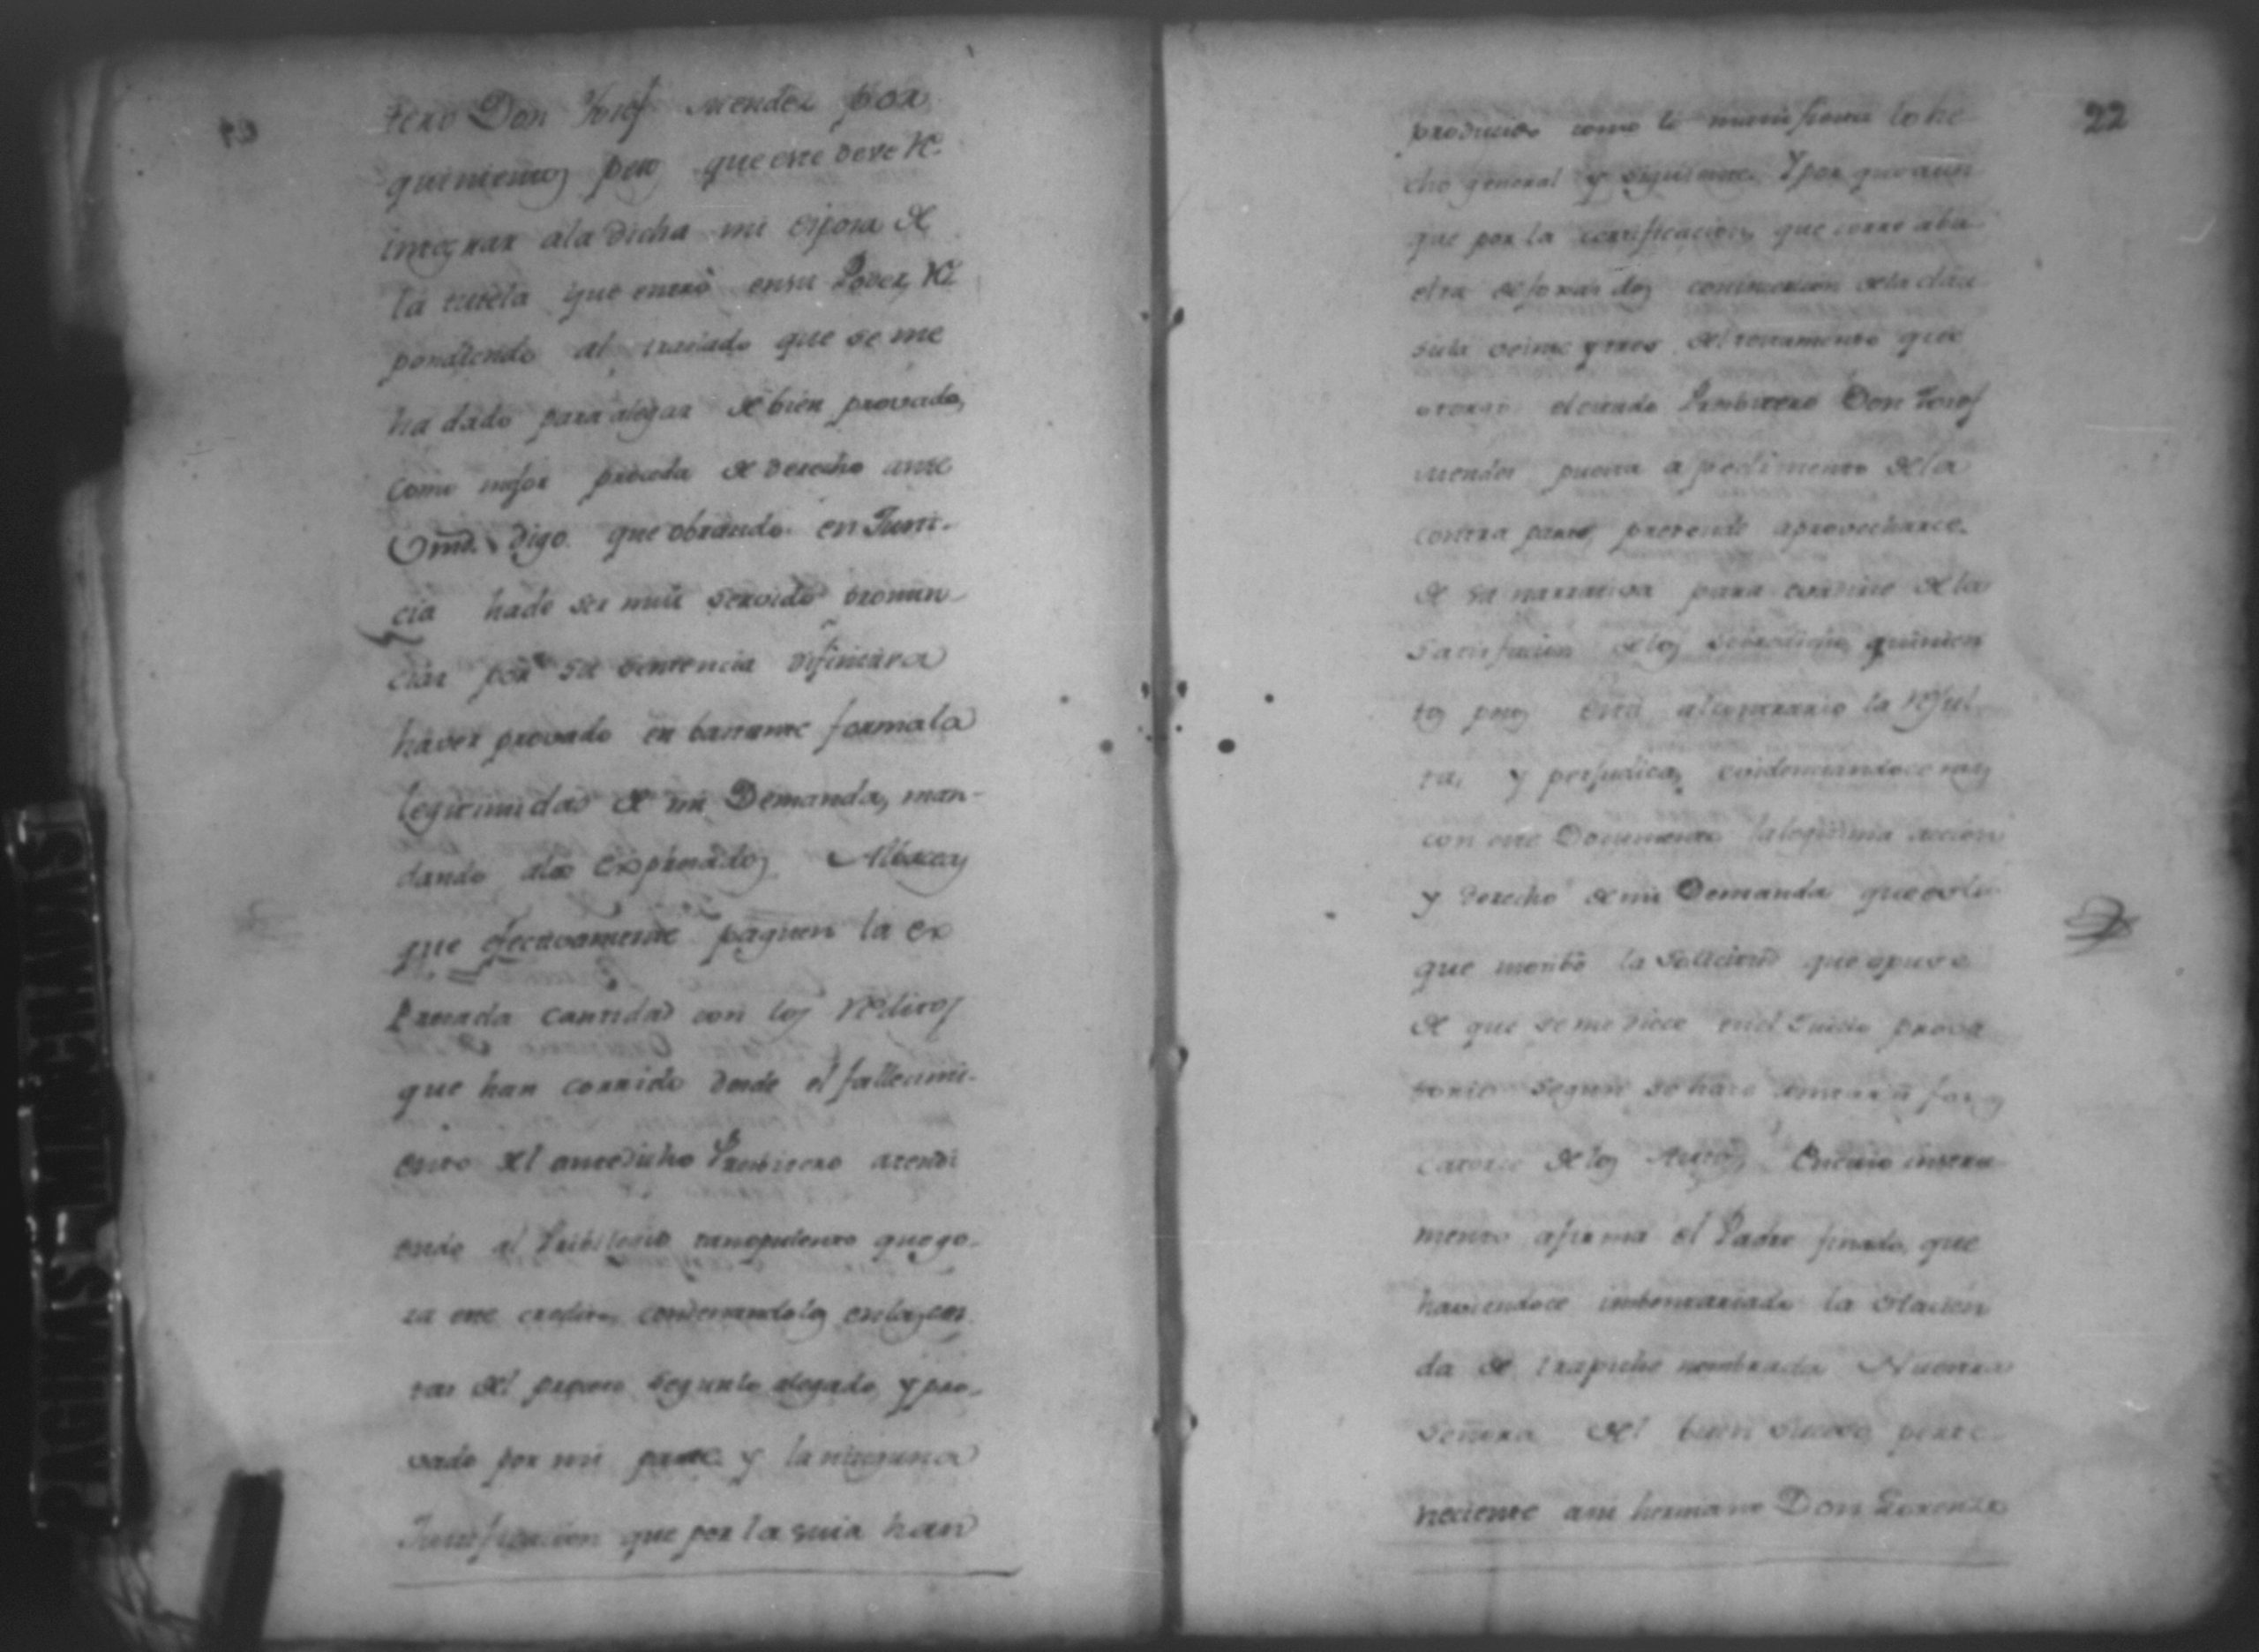 tero Don Josef Mendez por
quinientos pesos que este deve Re-
integrar ala dicha mi esposa de
la tutela que entró en su Poder, Res
pondiendo al traslado que se me
ha dado para alegar de bien provado,
como mejor proceda de derecho ante
Vmd. digo que obrando en Justi-
cia hade ser mui servido pronun-
ciar por su sentencia difinitiva
haver provado en bastante forma la
legitimidad de mi Demanda, man-
dando alos expresados Albaceas
que efectivamente paguen la ex
presada cantidad con los Reditos
que han corrido desde el fallecimi-
ento del antedicho Presbitero atendi
endo al Pribilegio tan opulento que go-
za este credito, condenandolos en las cos
tas del proceso segun lo alegado y pro-
vado por mi parte y la ninguna
Justificacion que por la suia han
22
producido como lo manifiesta lo he
cho general y siguiente. Y por que aun
que por la certificacion que corre aba
de fojas dos continuacion de la clau
sula veinte y tres del testamento que
otorgó el citado Presbitero Don Josef
Mendez puesta a pedimento de la
contra parte, pretende aprovecharce
de su narrativa para de la
satisfacion de los sobredichos quinien
tos pesos esta al contrario la Resul
ta, y perjudica, evidenciandoce mas
con este Documento la legitima accion
y derecho de mi Demanda que
que motibó la solicitud que opuse
de que se me diece en el Juicio prova
torio segun se hace a fojas
catorce de los Autos. En cuio instru
mento afirma el Padre finado, que
haviendoce imbentariado la Hacien
da de trapiche nombrada Nuestra
Señora del buen Suceso, perte-
neciente ami hermano Don Lorenzo